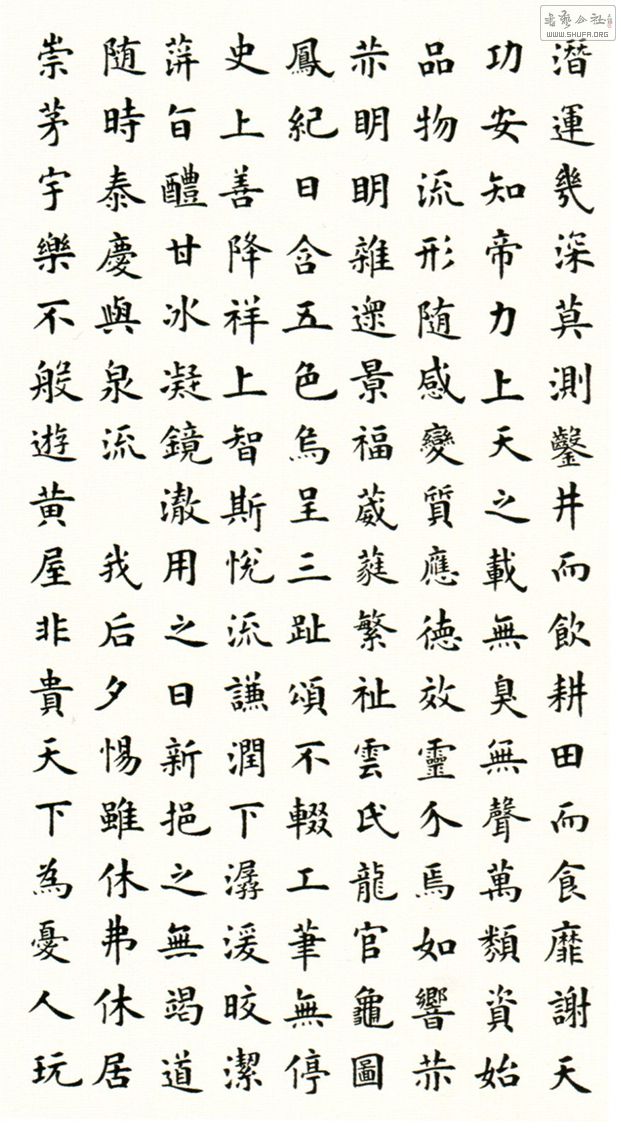 潛運幾深莫測鑿井而飲耕田而食靡謝天
功安知帝力上天之載無臭無聲萬類資始
品物流形随感變質應德效靈介焉如響赫
赫明明雜遝景福葳蕤繁祉雲氏龍官龜圖
鳳紀日含五色烏呈三趾頌不輟工筆無停
史上善降祥上智斯悅流謙潤下潺湲皎潔
蓱旨醴甘冰凝鏡澈用之日新挹之無竭道
随時泰慶與泉流 我后夕惕雖休弗休居
崇茅宇樂不般遊黃屋非貴天下為憂人玩
書藝公社
WWW.SHUFA.ORG